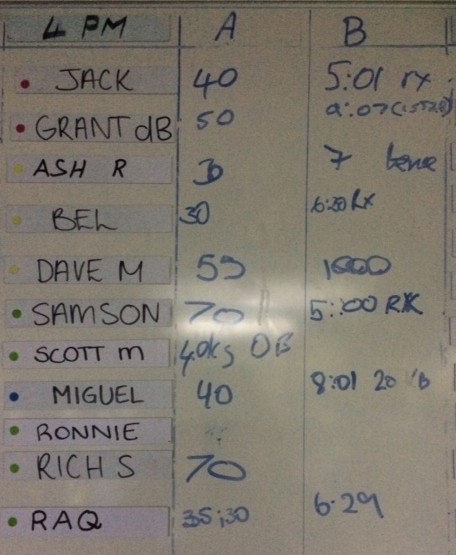 4 PM A B
JACK 40 5:01 rx
GRANT dB 50
ASH R 30 7
BEL 30 6:20 Rx
DAVE M 55 1000
SAMSON 70 5:00 RX
SCOTT m 40kg OB
MIGUEL 40 8:01 20
RONNIE
RICH S 70
RAQ 35;30 6:29